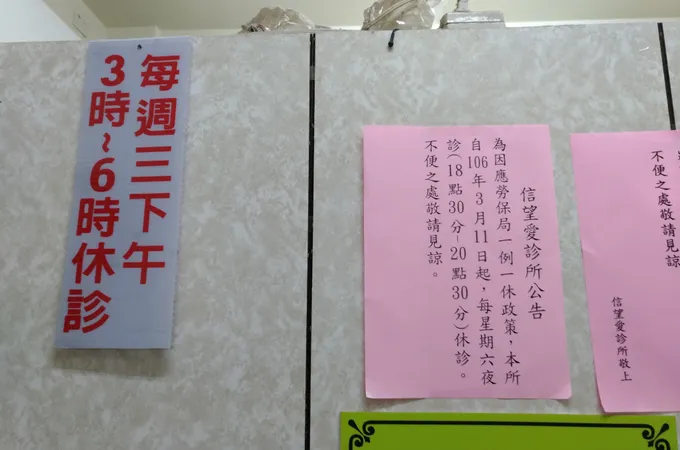 每週三下午
3時~6時休診
信望愛診所公告
為因應勞保局一例一休政策，本所
自106年3月11日起，每星期六夜
診(18點30分-20點30分)休診。
不便之處敬請見諒。
不便之處敬請見諒
信望愛診所敬上